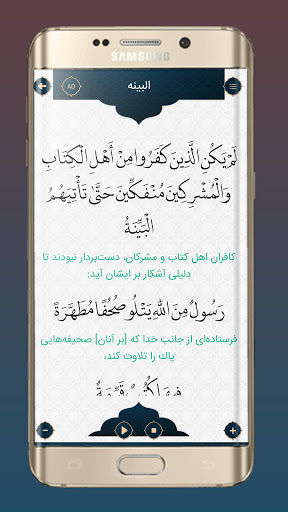 SAMSUNG
AD
البینه
لَمْ يَكُنِ الَّذِينَ كَفَرُوا مِنْ أَهْلِ الْكِتَابِ
وَالْمُشْرِكِينَ مُنْفَكِّينَ حَتَّىٰ تَأْتِيَهُمُ
الْبَيِّنَةُ
کافران اهل کتاب و مشرکان، دست‌بردار نبودند تا
دلیلی آشکار بر ایشان آید:
رَسُولٌ مِنَ اللَّهِ يَتْلُو صُحُفًا مُطَهَّرَةً
فرستاده‌ای از جانب خدا که [بر آنان] صحیفه‌هایی
پاك را تلاوت کند،
فِيهَا كُتُبٌ قَيِّمَةٌ